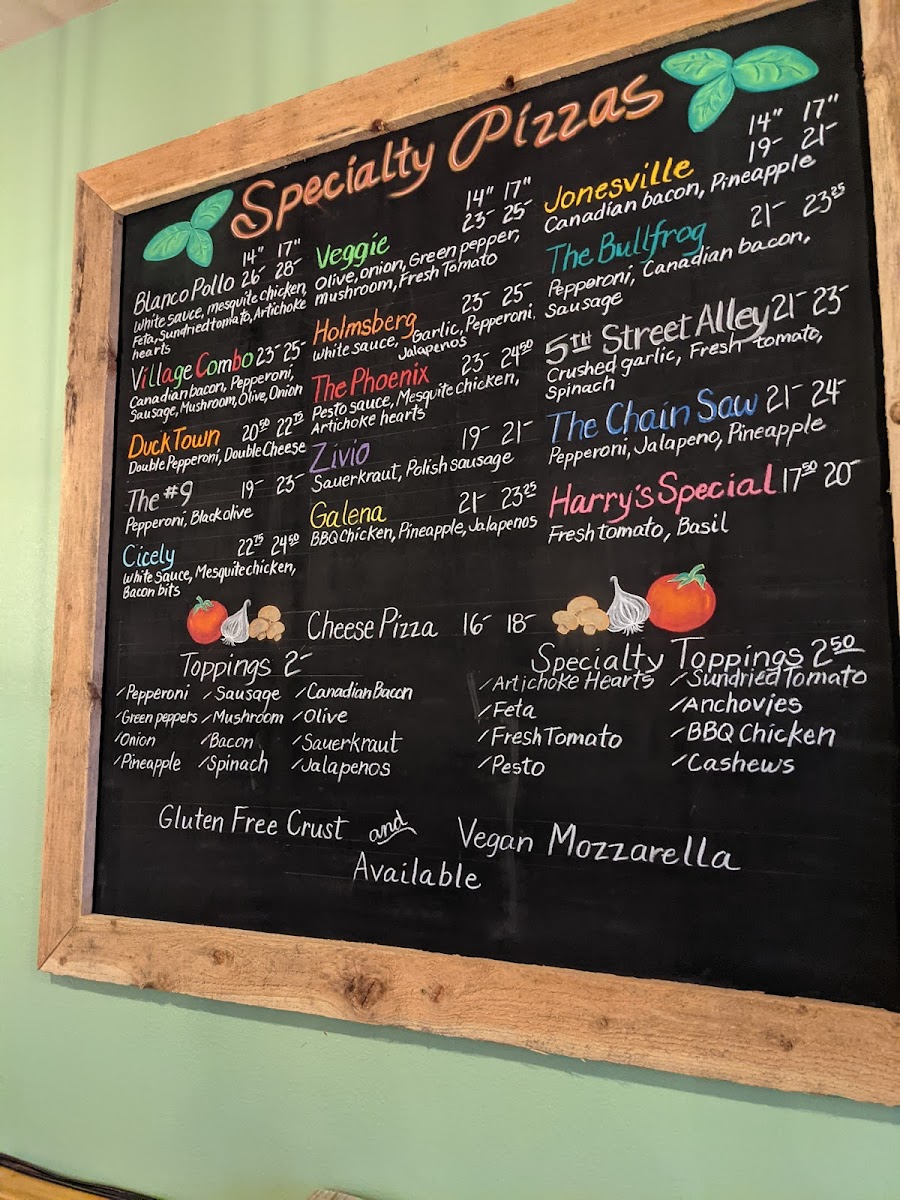 Specialty Pizzas
14" 17"
Blanco Pollo 26- 28-
White sauce, mesquite chicken,
Feta, Sundried tomato, Artichoke
hearts
Village Combo 23- 25-
Canadian bacon, Pepperoni,
Sausage, Mushroom, Olive, Onion
Duck Town 20⁵⁰ 22⁷⁵
Double Pepperoni, Double Cheese
The #9 19- 23-
Pepperoni, Black olive
Cicely 22⁷⁵ 24⁵⁰
White Sauce, Mesquite chicken,
Bacon bits
14" 17"
Veggie 23- 25-
Olive, onion, Green pepper,
mushroom, Fresh Tomato
Holmsberg 23- 25-
White sauce, Garlic, Pepperoni,
Jalapenos
The Phoenix 23- 24⁵⁰
Pesto sauce, Mesquite chicken,
Artichoke hearts
Zivio 19- 21-
Sauerkraut, Polish sausage
Galena 21- 23²⁵
BBQ Chicken, Pineapple, Jalapenos
14" 17"
Jonesville 19- 21-
Canadian bacon, Pineapple
The Bullfrog 21- 23²⁵
Pepperoni, Canadian bacon,
Sausage
5TH Street Alley 21- 23-
Crushed garlic, Fresh tomato,
Spinach
The Chain Saw 21- 24-
Pepperoni, Jalapeno, Pineapple
Harry's Special 17⁵⁰ 20-
Fresh tomato, Basil
Cheese Pizza 16- 18-
Toppings 2-
✓Pepperoni ✓Sausage ✓Canadian Bacon
✓Green peppets ✓Mushroom ✓Olive
✓Onion ✓Bacon ✓Sauerkraut
✓Pineapple ✓Spinach ✓Jalapenos
Specialty Toppings 2⁵⁰
✓Artichoke Hearts ✓Sundried Tomato
✓Feta ✓Anchovies
✓Fresh Tomato ✓BBQ Chicken
✓Pesto ✓Cashews
Gluten Free Crust and Vegan Mozzarella
Available